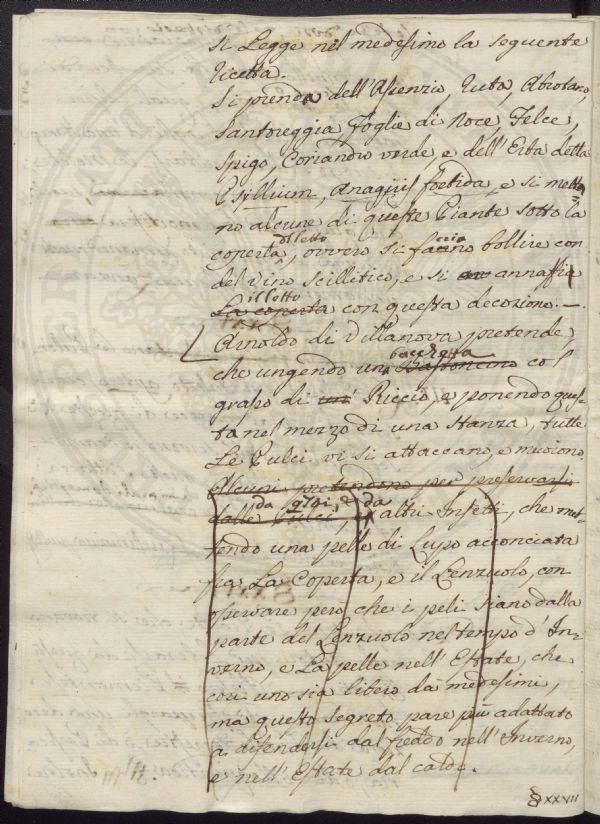 si Legge nel medesimo la seguente
ricetta.
Si prenda dell'Assenzio, Ruta, Abrotano,
Santoreggia foglie di Noce, Felce,
Spigo, Coriandro verde, e dell'Erba detta
Psyllium, Anagiris foetida, e si metta
no alcune di queste Piante sotto la
coperta, di letto ovvero si facino ccia bollire con
del vino scillitico, e si an annaffia
La coperta il letto con questa decozione. —
Arnoldo di Villanova pretende,
che ungendo un Bastoncino bacchetta col
grasso di un Riccio, e ponendo ques-
ta nel mezzo di una Stanza, tutte
Le Pulci vi si attaccano, e muoiono.
Alcuni pretendono per preservarsi
dalle Pulci, da altri, e da altri Insetti, che met-
tendo una pelle di Lupo acconciata
fra La Coperta, e il Lenzuolo, con
osservare pero che i peli siano dalla
parte del Lenzuolo nel tempo d'In-
verno, e La pelle nell'Estate, che
cosi uno sia libero da medesimi,
ma questo segreto pare più adattato
a difendersi dal freddo nell'Inverno,
e nell'Estate dal caldo.
§ XXVII